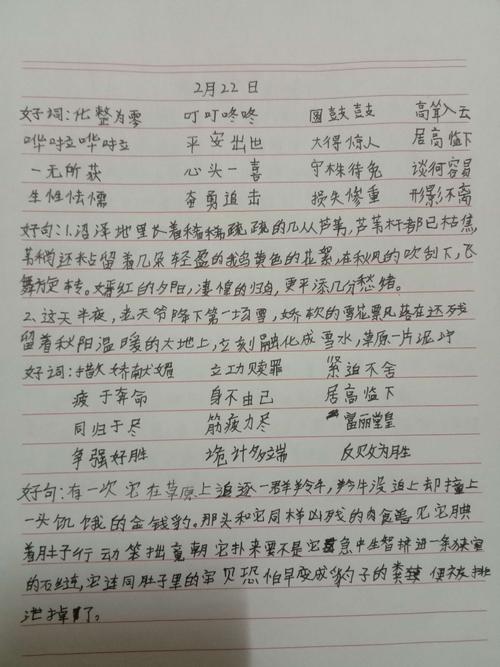 2月22日
好词:化整为零 叮叮咚咚 圆鼓鼓 高耸入云
哗啦哗啦 平安出世 大得惊人 居高临下
一无所获 心头一喜 守株待兔 谈何容易
生性怯懦 奋勇追击 损失惨重 形影不离
好句:1.沼泽地里长着稀稀疏疏的几丛芦苇,芦苇杆都已枯焦,
苇梢还粘留着几朵轻盈的鹅黄色的花絮,在秋风的吹刮下,飞
舞旋转。嫣红的夕阳,凄惶的归鸟,更平添几分愁绪。
2、这天半夜,老天爷降下第一场雪,娇软的雪花飘落在还残
留着秋阳温暖的大地上,立刻融化成雪水,草原一片泥泞
好词:撒娇献媚 立功赎罪 紧迫不舍
疲于奔命 身不由己 居高临下
同归于尽 筋疲力尽 富丽堂皇
争强好胜 诡计多端 反败为胜
好句:有一次它在草原上追逐一群羚羊,羚羊没追上却撞上
一头饥饿的金钱豹。那头和它同样凶残的肉食兽见它腆
着肚子行动笨拙竟朝它扑来要不是它急中生智挤进一条狭窄
的石缝,它连同肚子里的宝贝恐怕早变成豹子的粪便被排
泄掉了。